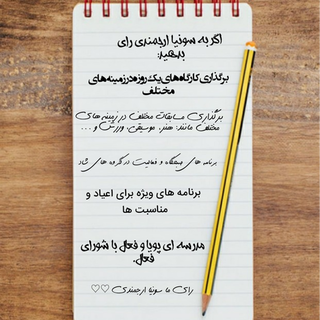 اگر به سونیا ارجمندی رای
بدهید:
برگذاری کارگاه‌های یک روزه در زمینه‌های
مختلف
برگذاری مسابقات مختلف در زمینه های
مختلف مانند: هنر، موسیقی، ورزش و ...
برنامه های و فعالیت در گروه های شاد
برنامه های ویژه برای اعیاد و
مناسبت ها
مدرسه ای پویا و فعال با شورای
فعال.
رای ما سونیا ارجمندی ♡♡